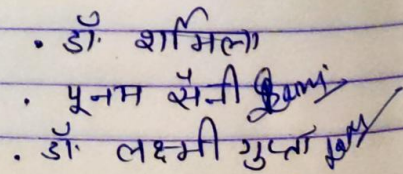 • डॉ. शर्मिला
• पूनम सैनी
• डॉ. लक्ष्मी गुप्ता